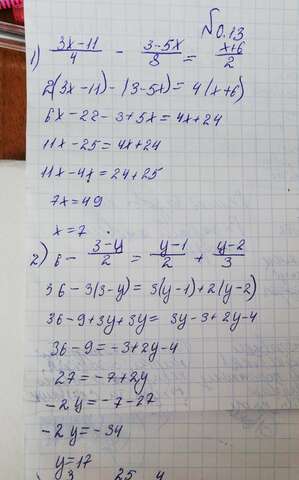 №0.13
1) (3x-11)/4 - (3-5x)/8 = (x+6)/2
2(3x-11)-(3-5x)=4(x+6)
6x-22-3+5x=4x+24
11x-25=4x+24
11x-4x=24+25
7x=49
x=7
2) 6-(3-y)/2 = (y-1)/2 + (y-2)/3
36-3(3-y)=3(y-1)+2(y-2)
36-9+3y+3y= 3y-3+2y-4
36-9=-3+2y-4
27=-7+2y
-2y=-7-27
-2y=-34
y=17